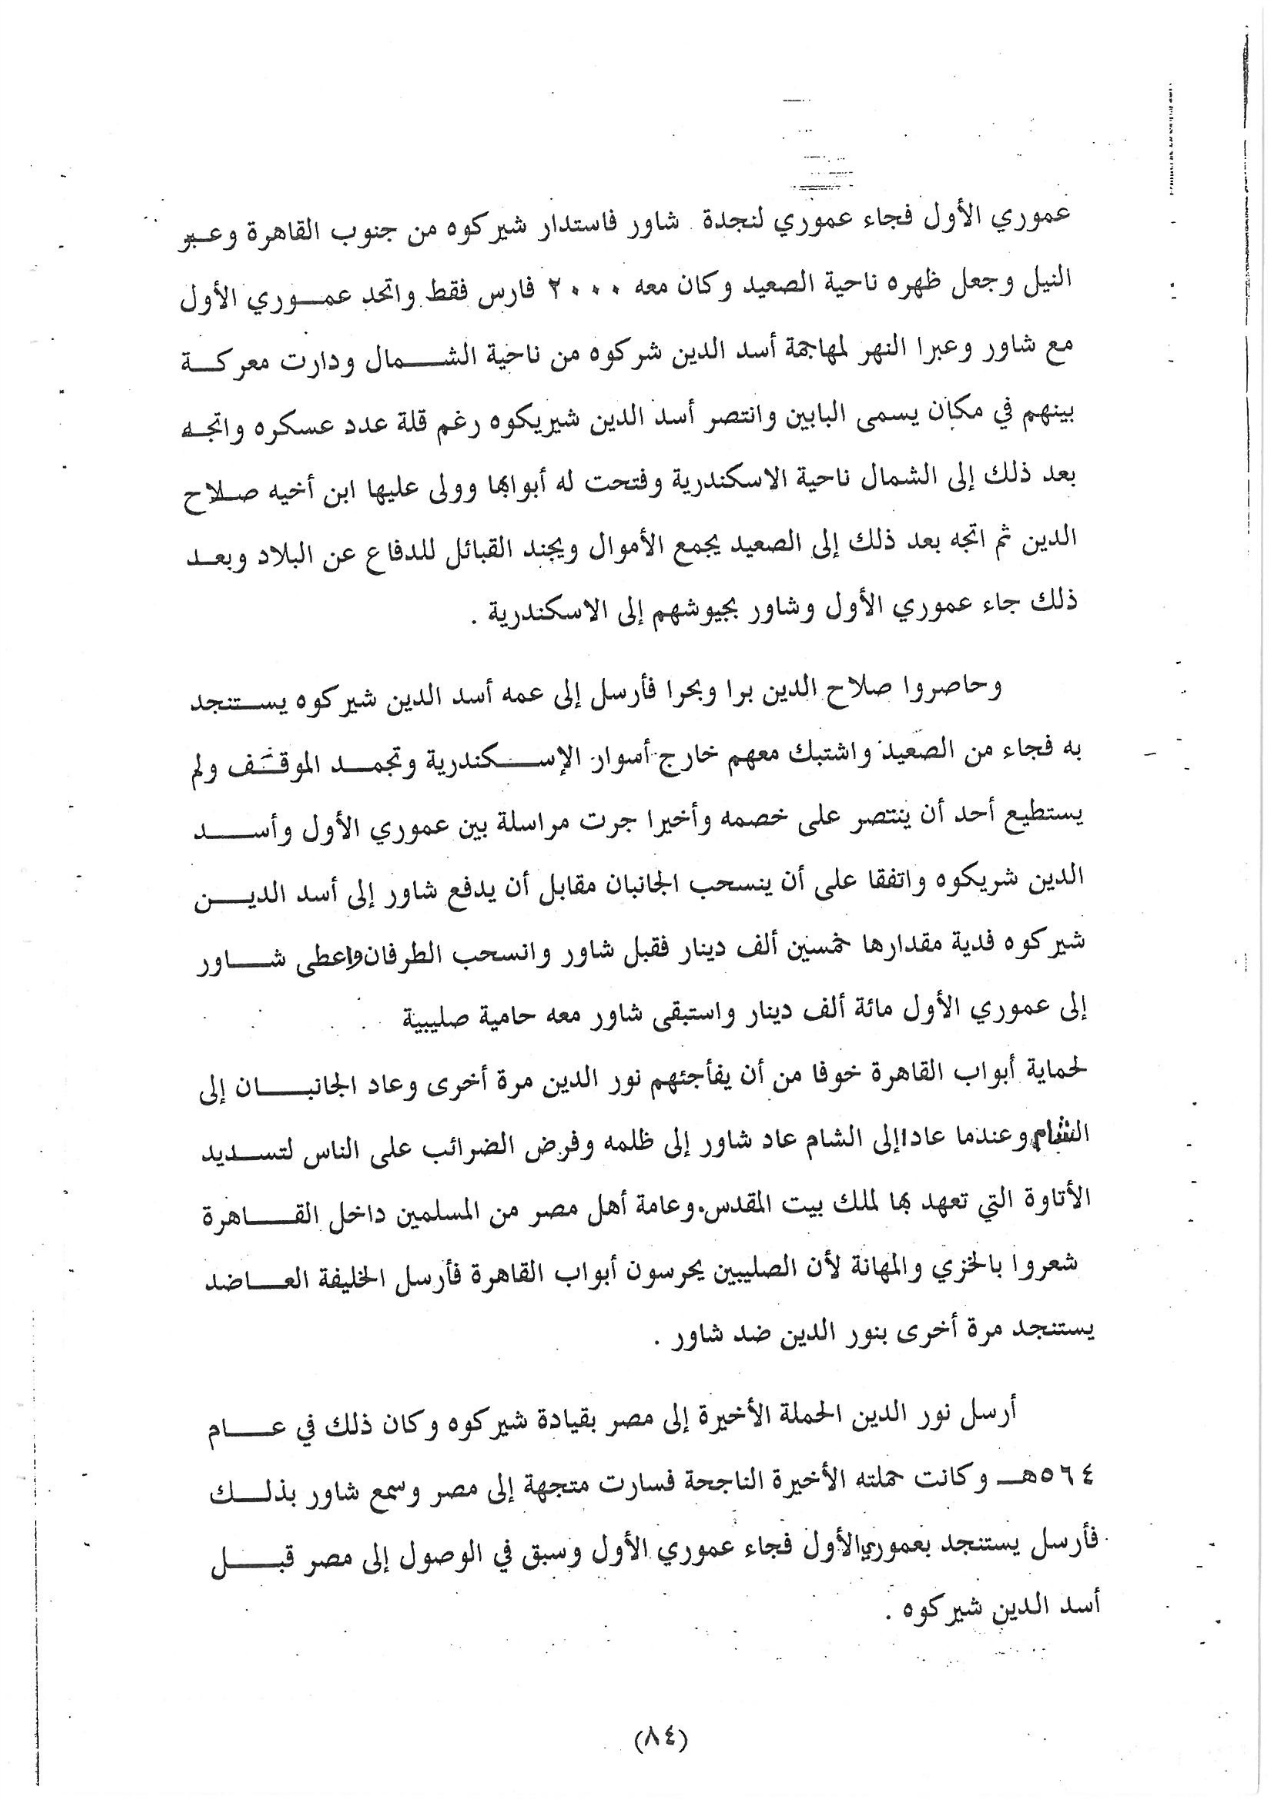 عموري الأول فجاء عموري لنجدة شاور فاستدار شيركوه من جنوب القاهرة وعبر
النيل وجعل ظهره ناحية الصعيد وكان معه ٢٠٠٠ فارس فقط واتحد عموري الأول
مع شاور وعبرا النهر لمهاجمة أسد الدين شركوه من ناحية الشمال ودارت معركة
بينهم في مكان يسمى البابين وانتصر أسد الدين شيريكوه رغم قلة عدد عسكره واتجه
بعد ذلك إلى الشمال ناحية الاسكندرية وفتحت له أبوابها وولى عليها ابن أخيه صلاح
الدين ثم اتجه بعد ذلك إلى الصعيد يجمع الأموال ويجند القبائل للدفاع عن البلاد وبعد
ذلك جاء عموري الأول وشاور بجيوشهم إلى الاسكندرية .
وحاصروا صلاح الدين برا وبحرا فأرسل إلى عمه أسد الدين شيركوه يستنجد
به فجاء من الصعيد واشتبك معهم خارج أسوار الإسكندرية وتجمد الموقف ولم
يستطيع أحد أن ينتصر على خصمه وأخيرا جرت مراسلة بين عموري الأول وأسد
الدين شريكوه واتفقا على أن ينسحب الجانبان مقابل أن يدفع شاور إلى أسد الدين
شيركوه فدية مقدارها خمسين ألف دينار فقبل شاور وانسحب الطرفان واعطى شاور
إلى عموري الأول مائة ألف دينار واستبقى شاور معه حامية صليبية
لحماية أبواب القاهرة خوفا من أن يفأجئهم نور الدين مرة أخرى وعاد الجانبان إلى
الشام وعندما عادا إلى الشام عاد شاور إلى ظلمه وفرض الضرائب على الناس لتسديد
الأتاوة التي تعهد بها لملك بيت المقدس. وعامة أهل مصر من المسلمين داخل القاهرة
شعروا بالخزي والمهانة لأن الصليبين يحرسون أبواب القاهرة فأرسل الخليفة العاضد
يستنجد مرة أخرى بنور الدين ضد شاور .
أرسل نور الدين الحملة الأخيرة إلى مصر بقيادة شيركوه وكان ذلك في عام
٥٦٤هـ وكانت حملته الأخيرة الناجحة فسارت متجهة إلى مصر وسمع شاور بذلك
فأرسل يستنجد بعموري الأول فجاء عموري الأول وسبق في الوصول إلى مصر قبل
أسد الدين شيركوه .
(٨٤)